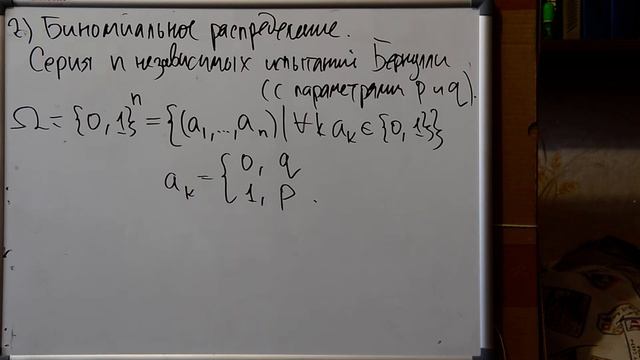 2) Биномиальное распределение.
Серия n независимых испытаний Бернулли
(с параметрами p и q).
Ω = {0, 1}ⁿ = {(a₁, ..., aₙ) | ∀k aₖ ∈ {0, 1}}
aₖ = { 0, q
1, p .